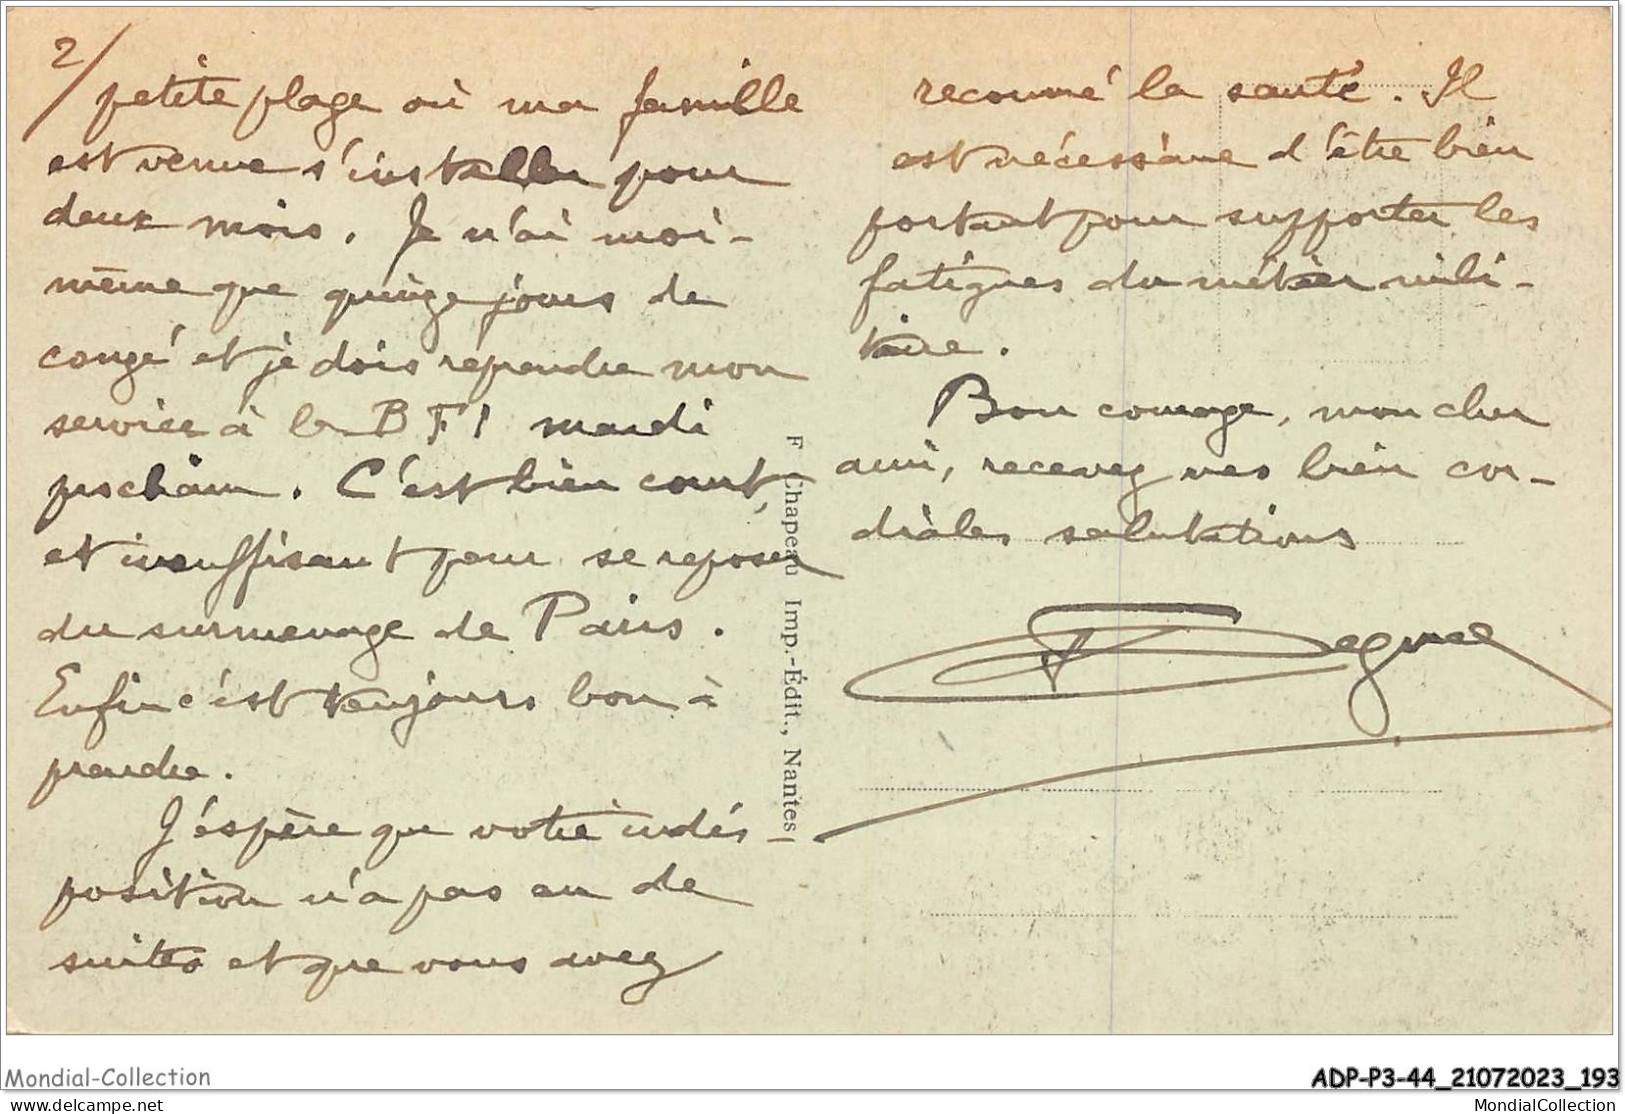 2/
petite plage où ma famille
est venue s'installer pour
deux mois. Je n'ai moi-
même que quinze jours de
congé et je dois reprendre mon
service à la B F I mardi
prochain. C'est bien court,
et insuffisant pour se reposer
du surmenage de Paris.
Enfin c'est toujours bon à
prendre.
J'éspère que votre indés
position n'a pas eu de
suites et que vous avez
recouvré la santé. Il
est nécéssaire d'être bien
portant pour supporter les
fatigues du métier mili-
taire.
Bon courage, mon cher
ami, recevez mes bien cor-
diales salutations
F Chapeau Imp.-Édit., Nantes
Mondial-Collection
ADP-P3-44_21072023_193
www.delcampe.net
MondialCollection